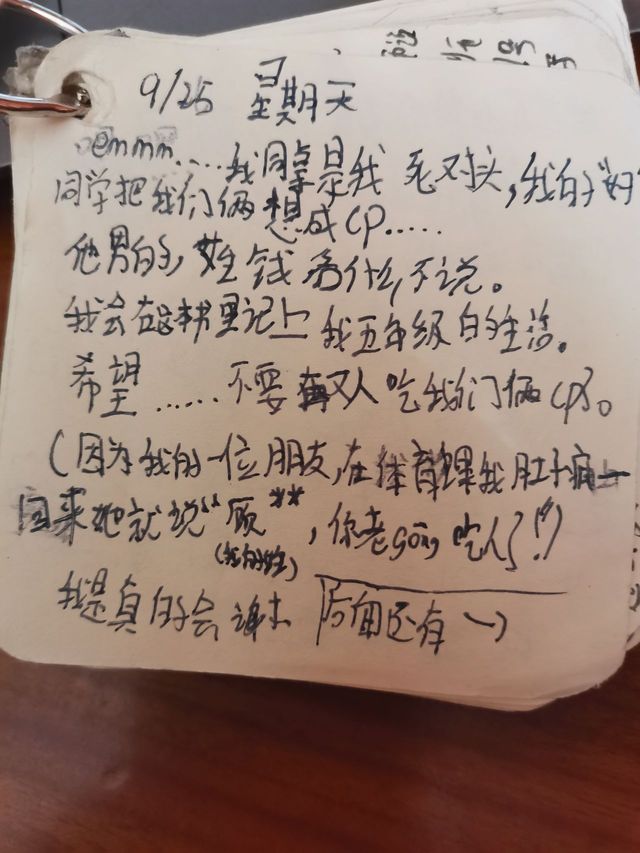 9/25 星期天
emmm....我同桌是我 死对头,我的"好
同学把我们俩想成CP.....
他男的,姓钱 名什么,不说。
我会在这本书里记上我五年级的生活。
希望......不要再又人吃我们俩CP了。
(因为我的一位朋友,在体育课我肚子痛
回来她就说"顾**,你老gōng吃人了!")
(我的姓)
我是真的会谢
后面还有→